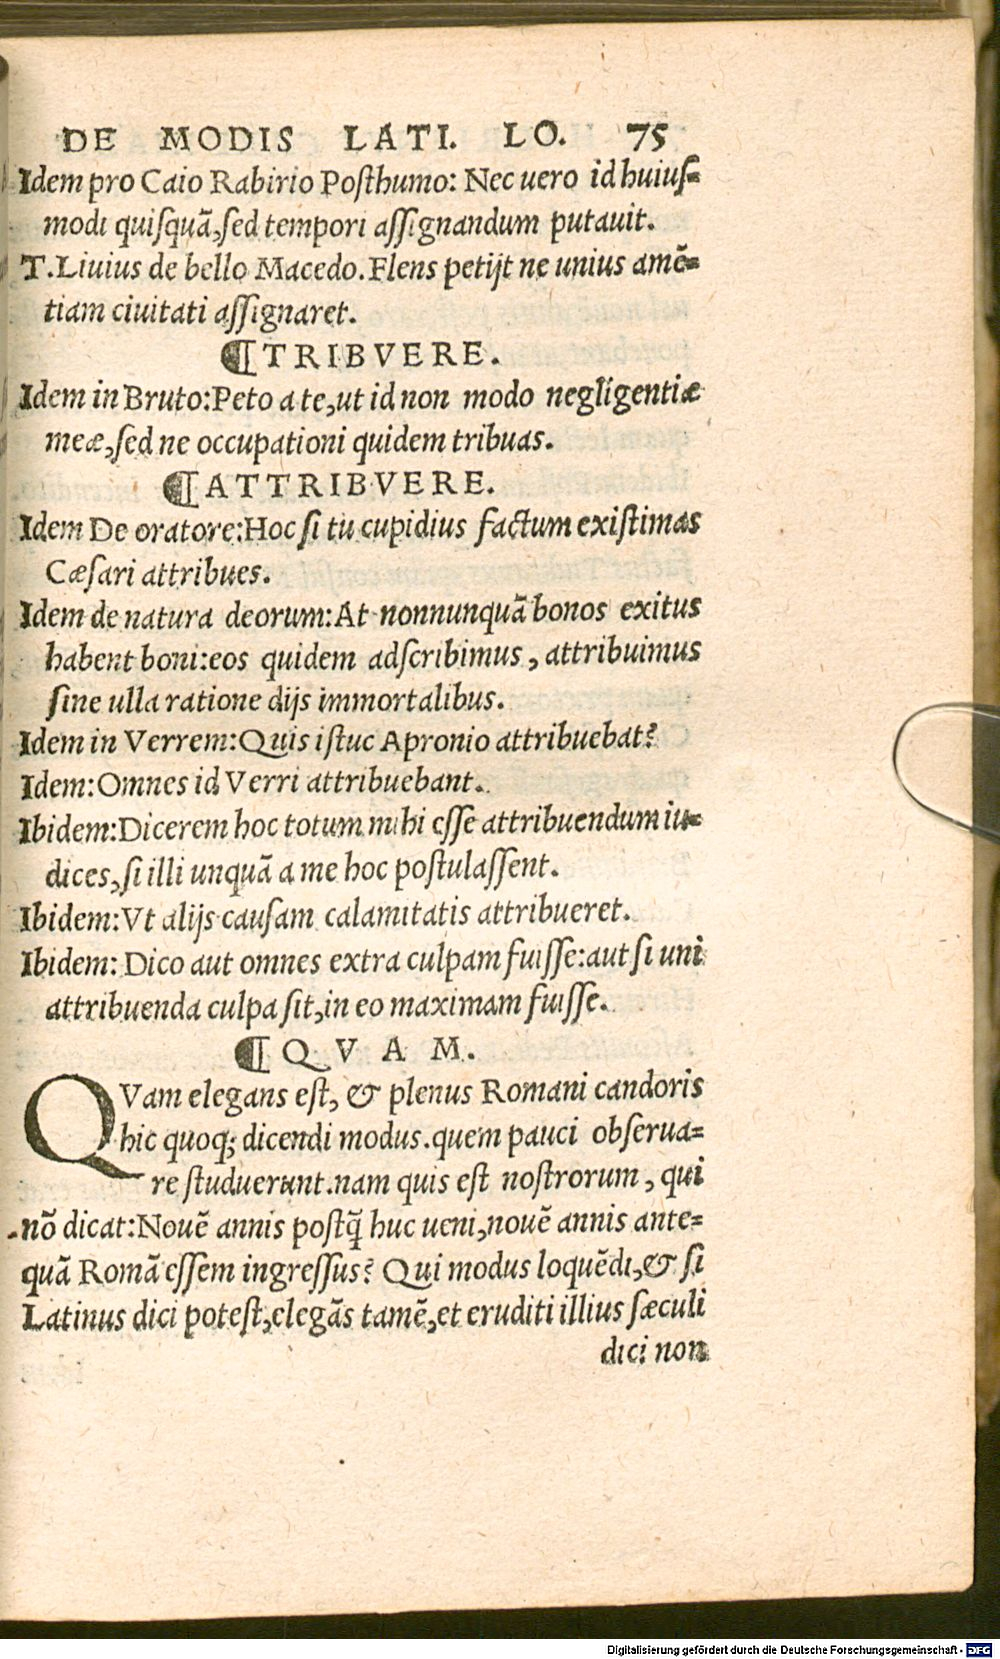 DE MODIS LATI. LO. 75
Idem pro Caio Rabirio Poſthumo: Nec uero id huiuſ=
modi quiſquã, ſed tempori aſſignandum putauit.
T. Liuius de bello Macedo. Flens petijt ne unius amẽ=
tiam ciuitati aſſignaret.
¶TRIBVERE.
Idem in Bruto: Peto a te, ut id non modo negligentiæ
meæ, ſed ne occupationi quidem tribuas.
¶ATTRIBVERE.
Idem De oratore: Hoc ſi tu cupidius factum exiſtimas
Cæſari attribues.
Idem de natura deorum: At nonnunquã bonos exitus
habent boni: eos quidem adſcribimus, attribuimus
ſine ulla ratione dijs immortalibus.
Idem in Verrem: Quis iſtuc Apronio attribuebat?
Idem: Omnes id Verri attribuebant.
Ibidem: Dicerem hoc totum mihi eſſe attribuendum iu=
dices, ſi illi unquã a me hoc poſtulaſſent.
Ibidem: Vt alijs cauſam calamitatis attribueret.
Ibidem: Dico aut omnes extra culpam fuiſſe: aut ſi uni
attribuenda culpa ſit, in eo maximam fuiſſe.
¶QVAM.
QVam elegans eſt, & plenus Romani candoris
hic quoq; dicendi modus. quem pauci obſerua=
re ſtuduerunt. nam quis eſt noſtrorum, qui
nõ dicat: Nouẽ annis poſtq̃ huc ueni, nouẽ annis ante=
quã Romã eſſem ingreſſus? Qui modus loquẽdi, & ſi
Latinus dici poteſt, elegãs tamẽ, et eruditi illius ſæculi
dici non
Digitalisierung gefördert durch die Deutsche Forschungsgemeinschaft - DFG